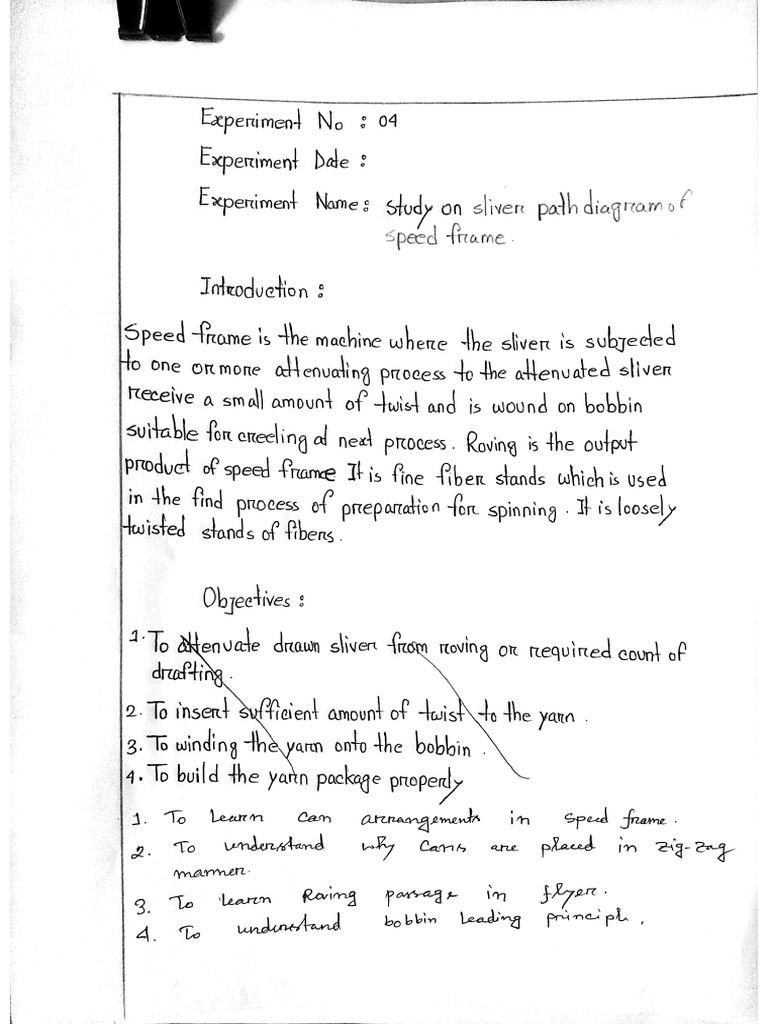 Experiment No : 04
Experiment Date :
Experiment Name : Study on sliver path diagram of
speed frame.
Introduction :
Speed frame is the machine where the sliver is subjected
to one or more attenuating process to the attenuated sliver
receive a small amount of twist and is wound on bobbin
suitable for creeling at next process. Roving is the output
product of speed frame It is fine fiber stands which is used
in the find process of preparation for spinning. It is loosely
twisted stands of fibers.
Objectives :
1. To attenuate drawn sliver from roving or required count of
drafting.
2. To insert sufficient amount of twist to the yarn.
3. To winding the yarn onto the bobbin.
4. To build the yarn package properly
1. To learn can arrangements in speed frame.
2. To understand why cans are placed in zig-zag
manner.
3. To learn Roving passage in flyer.
4. To understand bobbin leading principle.